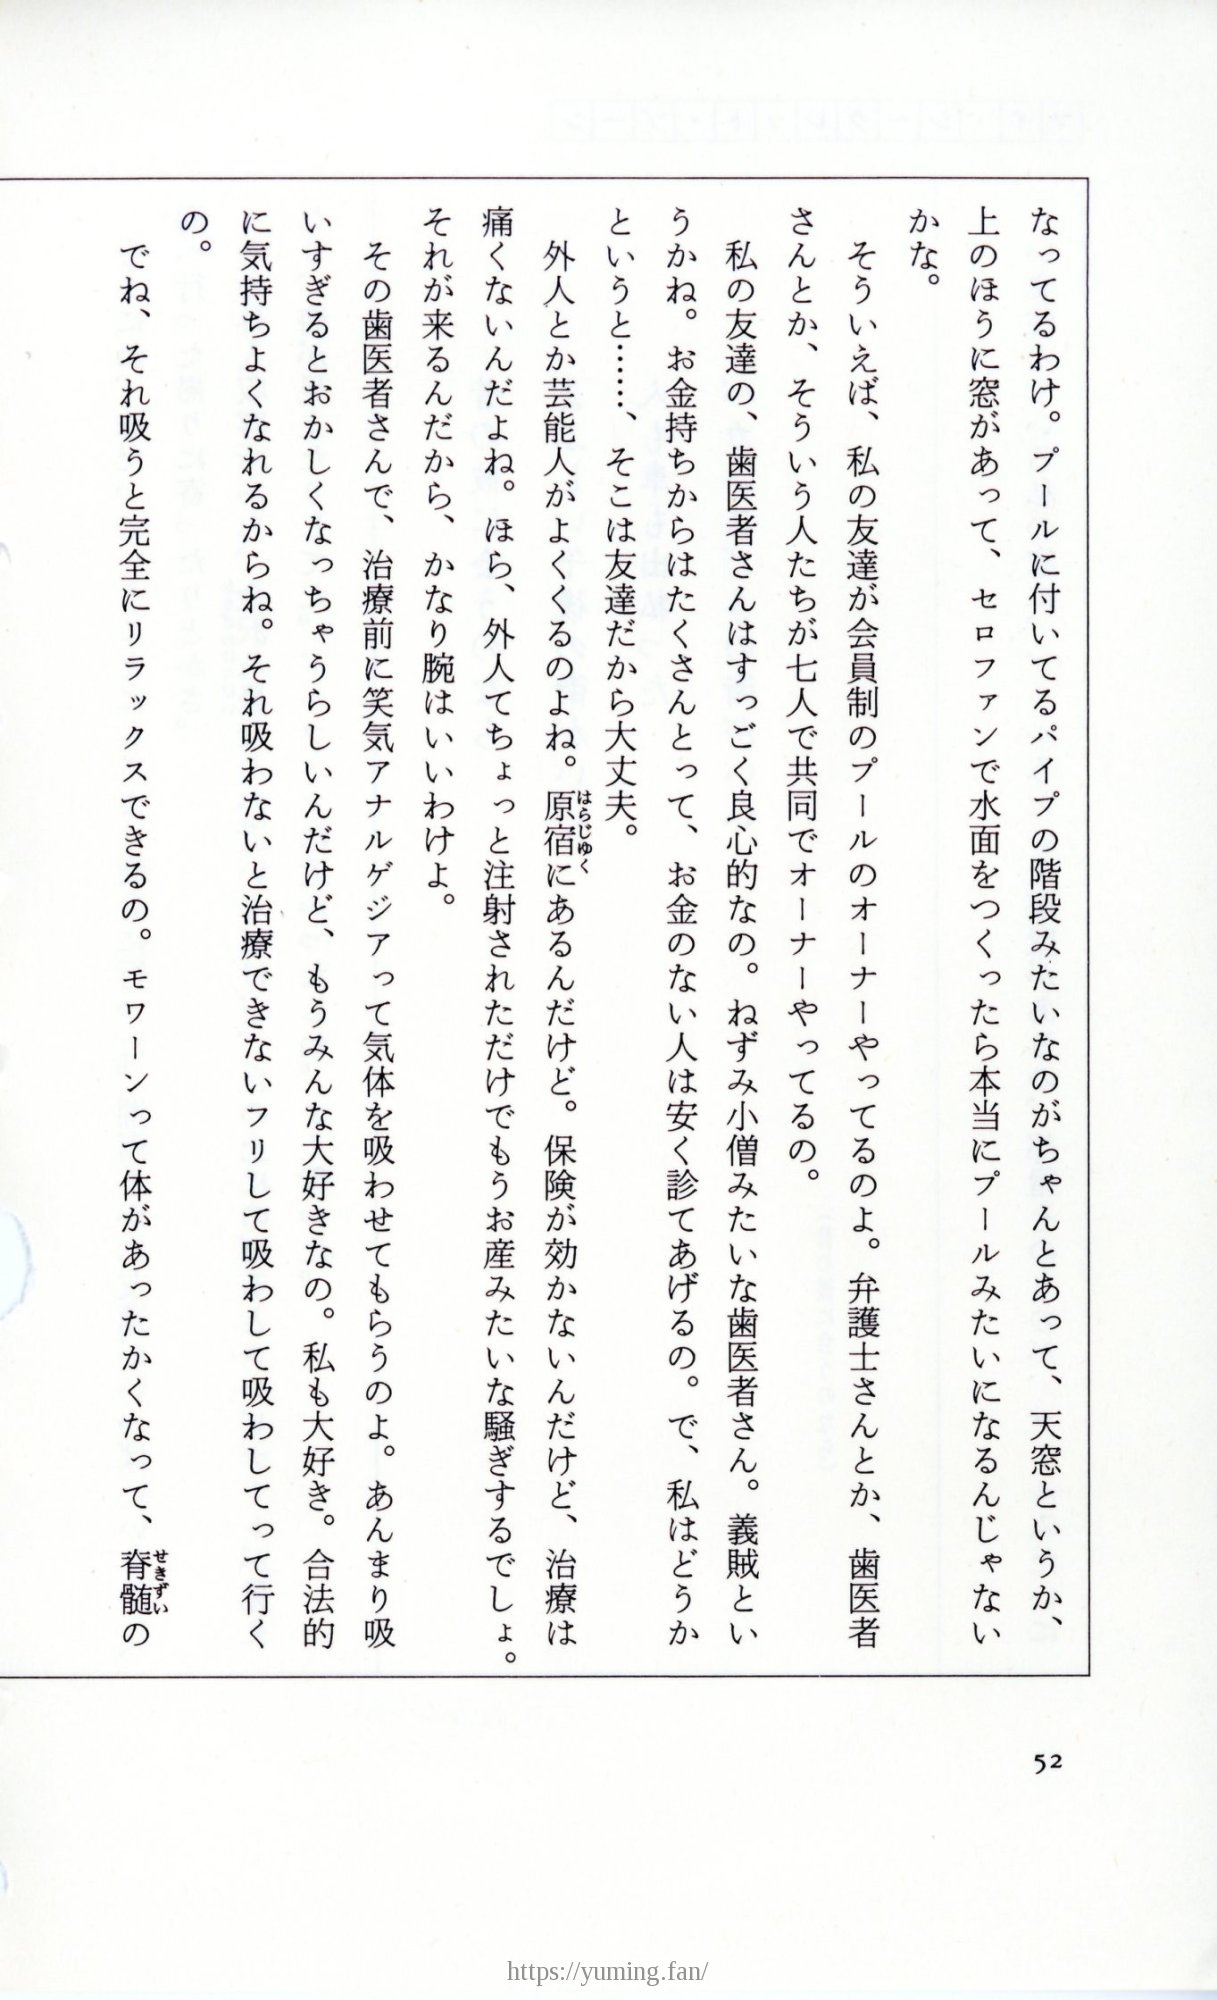 なってるわけ。プールに付いてるパイプの階段みたいなのがちゃんとあって、天窓というか、
上のほうに窓があって、セロファンで水面をつくったら本当にプールみたいになるんじゃない
かな。
そういえば、私の友達が会員制のプールのオーナーやってるのよ。弁護士さんとか、歯医者
さんとか、そういう人たちが七人で共同でオーナーやってるの。
私の友達の、歯医者さんはすっごく良心的なの。ねずみ小僧みたいな歯医者さん。義賊とい
うかね。お金持ちからはたくさんとって、お金のない人は安く診てあげるの。で、私はどうか
というと……、そこは友達だから大丈夫。
外人とか芸能人がよくくるのよね。原宿にあるんだけど。保険が効かないんだけど、治療は
はらじゅく
痛くないんだよね。ほら、外人てちょっと注射されただけでもうお産みたいな騒ぎするでしょ。
それが来るんだから、かなり腕はいいわけよ。
その歯医者さんで、治療前に笑気アナルゲジアって気体を吸わせてもらうのよ。あんまり吸
いすぎるとおかしくなっちゃうらしいんだけど、もうみんな大好きなの。私も大好き。合法的
に気持ちよくなれるからね。それ吸わないと治療できないフリして吸わして吸わしてって行く
の。
でね、それ吸うと完全にリラックスできるの。モワーンって体があったかくなって、脊髄の
せきずい
52
https://yuming.fan/